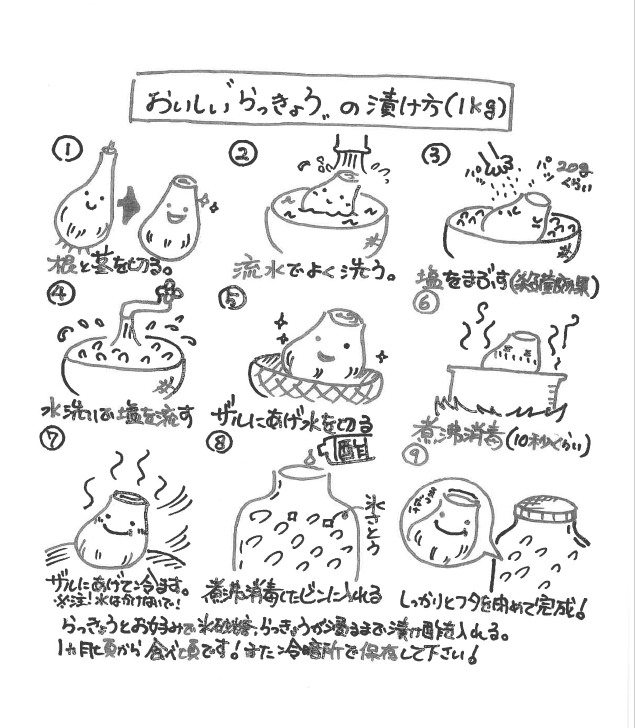 おいしい"らっきょう"の漬け方(1kg)
①
根と茎を切る。
②
流水でよく洗う。
③
パッ パッ 20gくらい
塩をまぶす(殺菌効果)
④
水洗いで塩を流す
⑤
ザルにあげ水を切る
⑥
煮沸消毒(10秒くらい)
⑦
ザルにあげて冷ます。
※注!水はかけないで!
⑧
酢
氷さとう
煮沸消毒したビンに入れる
⑨
しっかりとフタを閉めて完成!
らっきょうとお好みで氷砂糖、らっきょうが浸るまで漬け酢を入れる。
1ヵ月頃から食べ頃です!また冷暗所で保存して下さい!